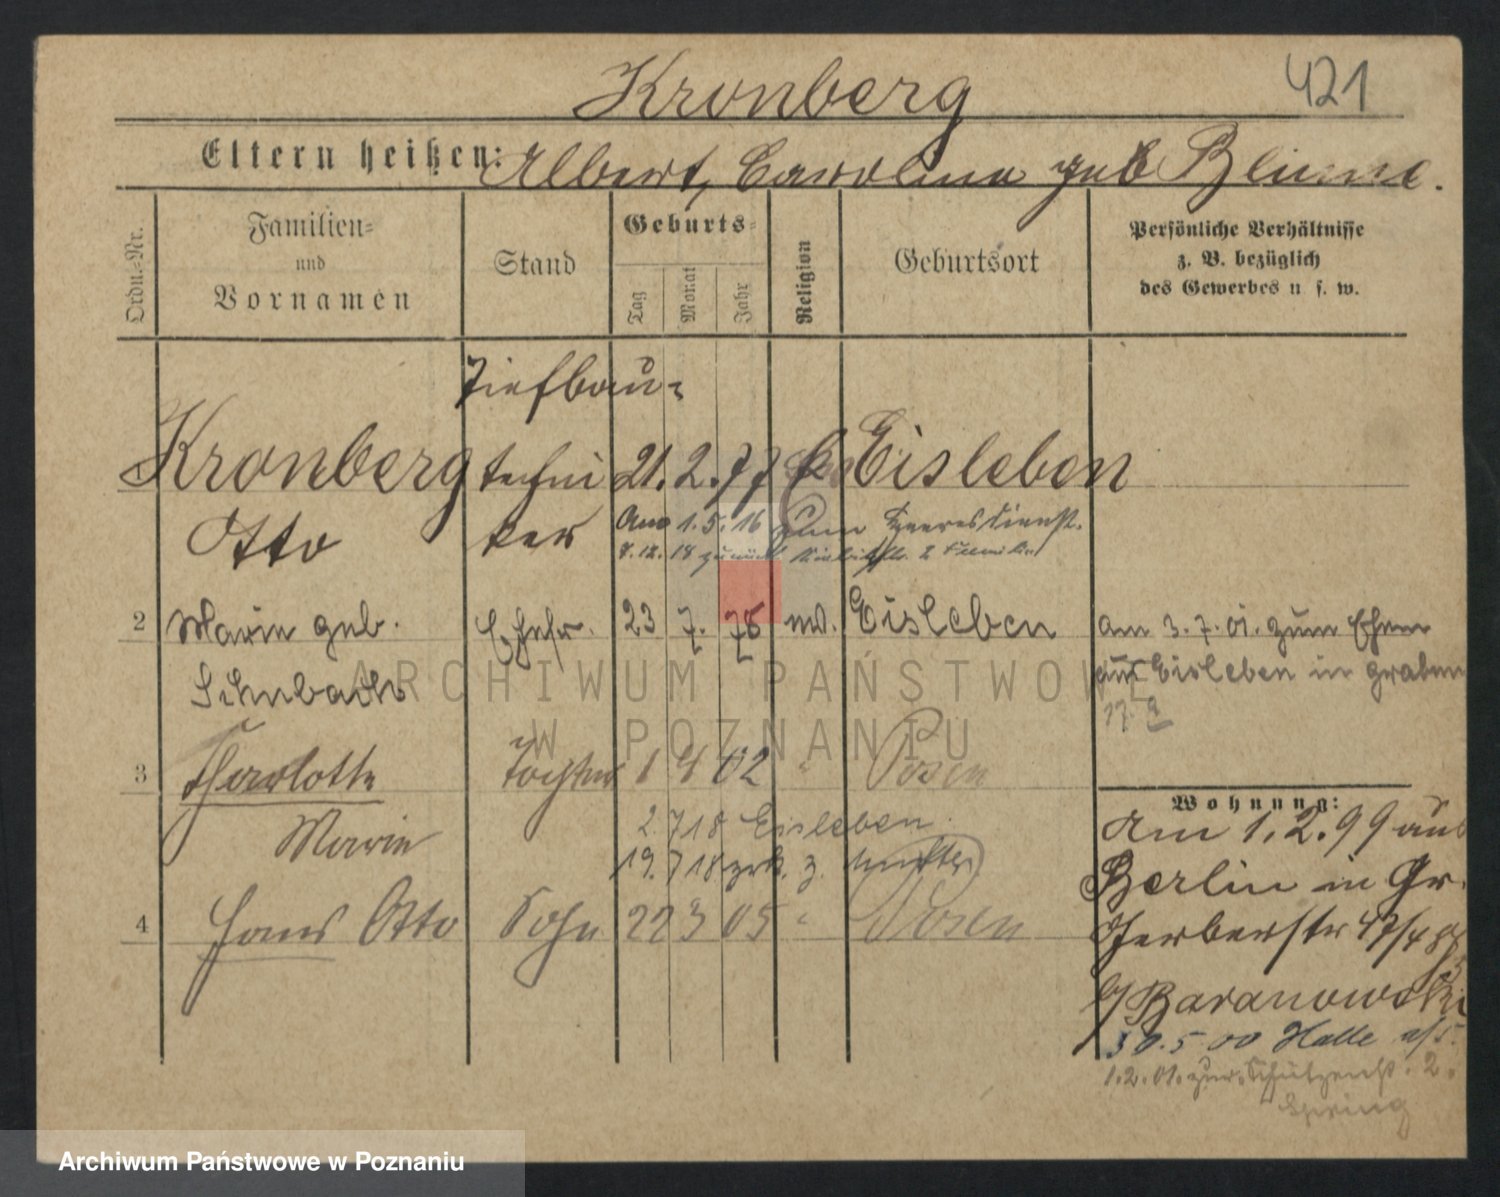 Kronberg 421
Eltern heißen: Albert, Carolina geb Blume.
Ordn.-Nr.
Familien-
und
Vornamen
Stand
Geburts-
Tag
Monat
Jahr
Religion
Geburtsort
Persönliche Verhältnisse
z. B. bezüglich
des Gewerbes u. s. w.
Tiefbau-
Kronberg techni 21. 2. 77 Eisleben
Otto ker
Am 1.5.16 zum Heeresdienst.
8.12.18 zurück
2 Marie geb. Ehefr. 23 7. 78 Eisleben
am 3.7.01. zum Ehem
aus Eisleben in
17. 9
3 Charlotte Tochter 1 4 02 " Posen
Marie
2.7 18 Eisleben.
19.7 18 zrk. z.
4 Hans Otto Sohn 22 3 05 " Posen
Wohnung:
Am 1.2.99 aus
Berlin in Gr.
Gerberstr 47/48
b/ Baranowski
30.5 00 Halle a/S.
1.2.01. zur. Schützenst. 2.
Spring
ARCHIWUM PAŃSTWOWE
W POZNANIU
Archiwum Państwowe w Poznaniu